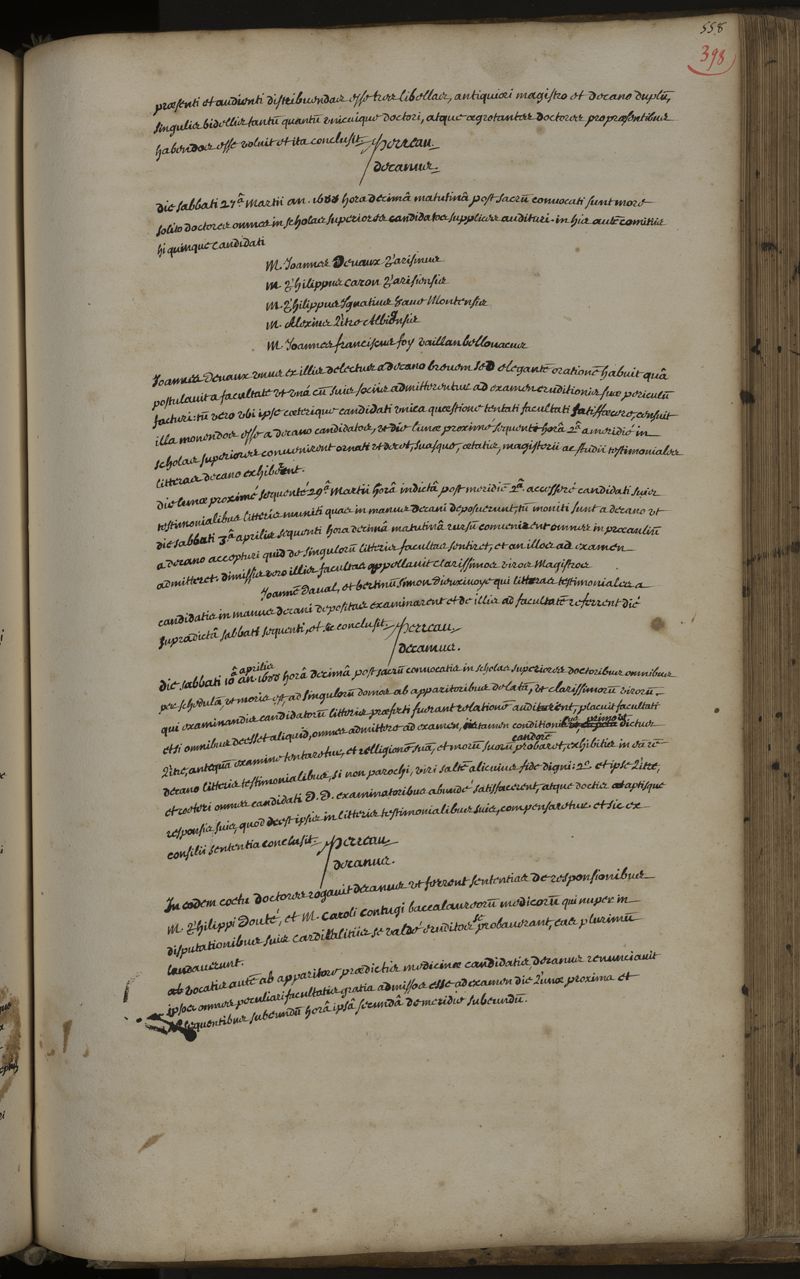 558
398
præsenti et audienti distribuendas esse tres libellas, antiquiori magistro et decano duplū,
singulis bidellis tantū quantū unicuique doctori, atque ægrotantes doctores pro præsentibus
habendos esse voluit et ita conclusit. Perreau
decanus.
die sabbati 27ᵃ Martii an. 1688 horâ decimâ matutinâ post sacrū convocati sunt more
solito doctores omnes in scholas superiores candidatos supplices audituri. in his autē comitiis
hi quinque candidati
M. Joannes Devaux Parisinus
M. Philippus Caron Parisiensis
M. Philippus Ignatius Potensis
M. Alexius Litre Albigensis
M. Joannes franciscus foy vaillan bellovacus
Joannes Devaux unus ex illis delectus a decano brevem sed elegantē orationē habuit quâ
postulavit a facultate ut unâ cū suis sociis admitterentur ad examen eruditionis suæ periculū
facturi: tū vero ubi ipse cæterique candidati unica quæstione tentati facultati satisfecere, censuit
illa monendos esse a decano candidatos, ut die lunæ proximo sequente horâ 2ᵃ a meridie in
scholas superiores convenirent ornati ut decet, suasque, ætatis, magisterii ac studii testimoniales
litteras decano exhiberent.
die lunæ proximè sequente 29ᵃ Martii horâ indictâ post meridiē 2ᵃ accessere candidati suis
testimonialibus litteris muniti quas in manus decani deposuerunt, tū moniti sunt a decano ut
die sabbati 3ᵃ aprilis sequenti hora decimâ matutinâ rursū convenirent omnes in proxaulū
a decano accepturi quid de singulorū litteris facultas sentiret, et an illos ad examen
admitteret. dimissis vero illis facultas appellavit clarissimos viros Magistros
Joannē Daual, et bertinū simon Dieuxiuoye qui litteras testimoniales a
candidatis in manus decani depositas examinarent et de illis ad facultatē referrent die
supradictâ sabbati sequenti, et sic conclusit. Perreau
decanus.
die sabbati aprilis an 1688 horâ decimâ post sacrū convocatis in scholas superiores doctoribus omnibus
per schedulâ, ut moris est, ad singulorū domos ab apparitoribus delatā, ut clarissimorū virorū
qui examinandis candidatorū litteris præfecti fuerant relationē audirent, placuit facultati
etsi omnibus deesset aliquid, omnes admittere ad examen, eâ tamen conditione dictus
Litre, antequā examine tentaretur, et relligionē suâ, et morū suorū candorē probaret, exhibitis in eâ rē
decano litteris testimonialibus, si non parochi, viri saltē alicuius fide digni: 2º. et ipse Litre,
et cæteri omnes candidati D.D. examinatoribus abundè satisfacerent, atque doctis aptisque
responsis suis, quod deest ipsis in litteris testimonialibus suis, compensaretur. et sic ex
consilii sententia conclusit. Perreau
decanus.
In eodem coetu doctores rogavit decanus ut ferrent sententias de responsionibus
M. Philippi Douté, et M. Caroli Contugi baccalaureorū medicorū qui nuper in
disputationibus suis cardinalitiis se valdè eruditos probaverant, eas plurimū
laudaverunt.
vocatis autē ab apparitore prædictis medicinæ candidatis, decanus renunciavit
ipsos omnes peculiari facultatis gratia admissos esse ad examen die Lunæ proxima et
sequentibus subeundū horâ ipsâ secundâ de meridie subeundū.